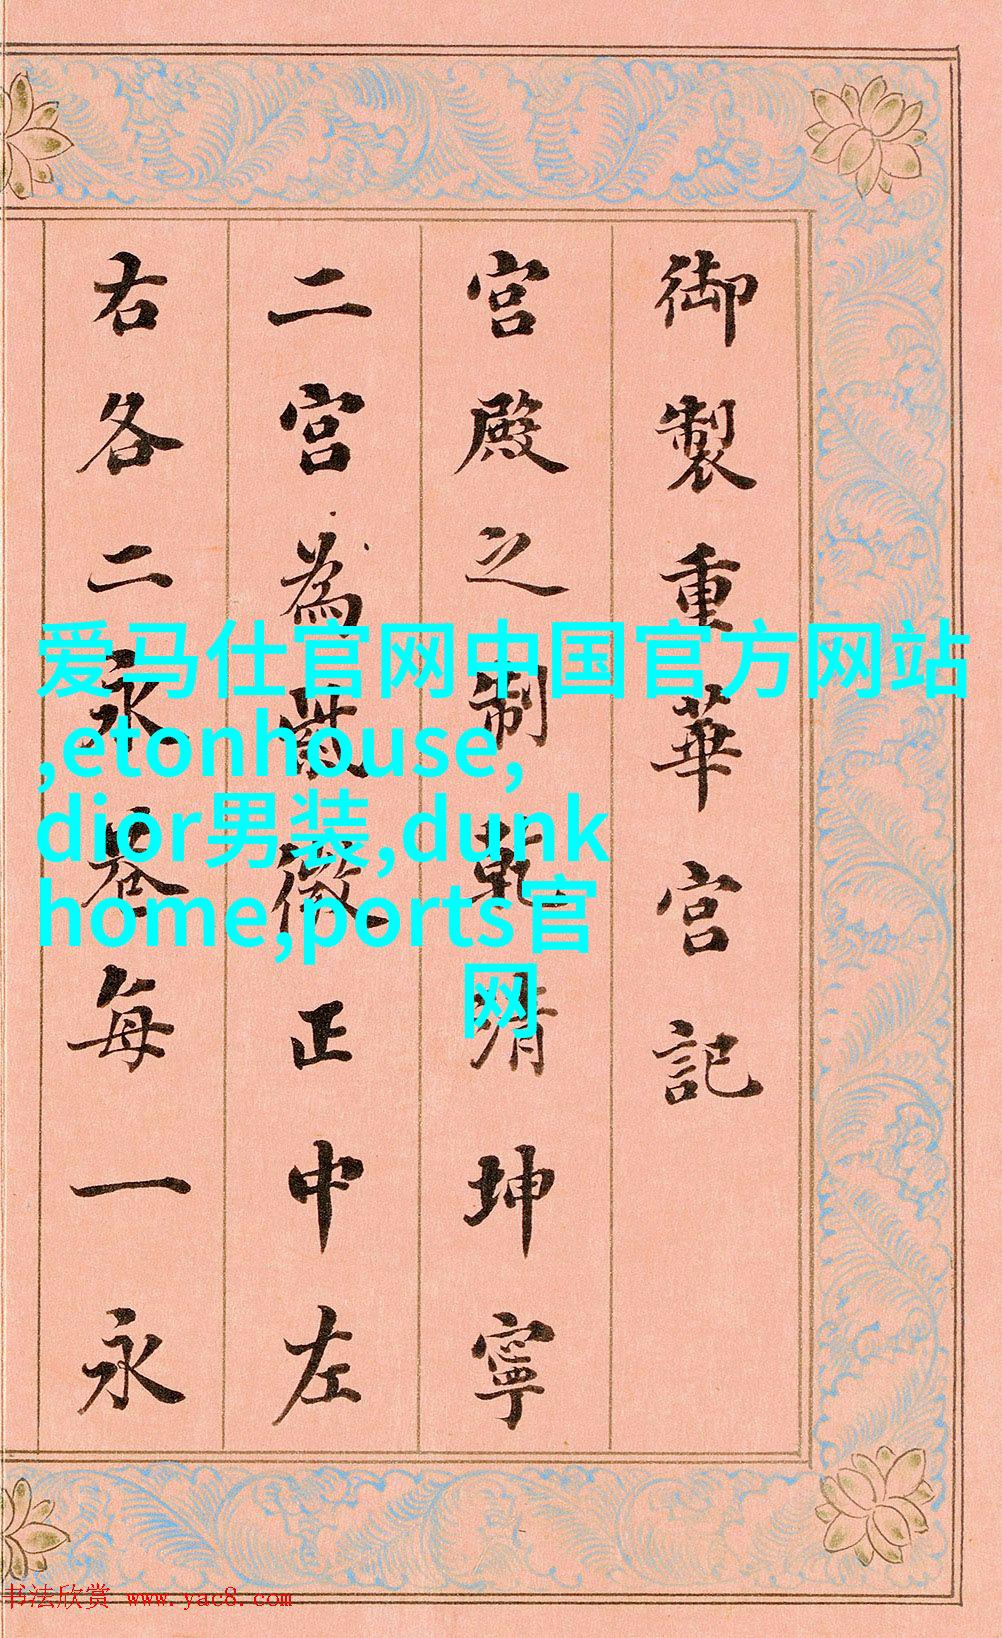 御製重華宮記
宮殿之制乾清坤寧
二宮為微正中左
右各二永巷每一永
爱马仕官网中国官方网站
,etonhouse,
dior男装,dunk
home,ports官
网
书法欣赏 www.yac8.com